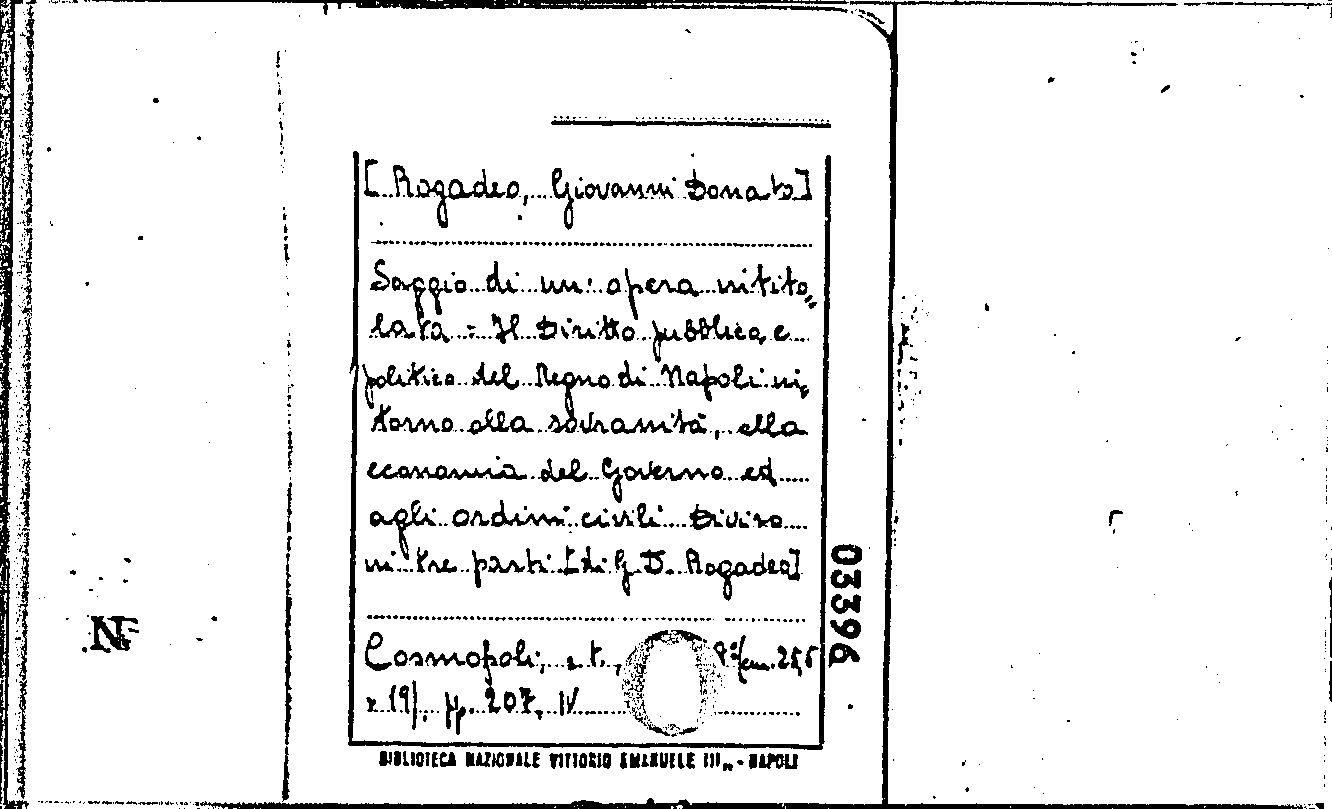 [Rogadeo, Giovanni Donato]
Saggio di un' opera intito„
lata = Il Diritto pubblico, e
politico del Regno di Napoli in„
torno alla sovranità, alla
economia del Governo ed
agli ordini civili Diviso
in tre parti [di G. D. Rogadeo]
03396
Cosmopoli, s.t., 8° (cm. 25,5
x 19). pp. 207, IV
BIBLIOTECA NAZIONALE VITTORIO EMANUELE III„ - NAPOLI